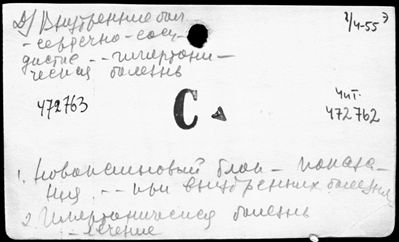 2/4-55 Э
Д) Внутренние бол
- сердечно-сосу-
дистые -- гипертони-
ческая болезнь
472763
С
Чит.
472762
1. Новокаиновый блок - показа-
ния. -- при внутренних болезнях
2. Гипертоническая болезнь
- лечение